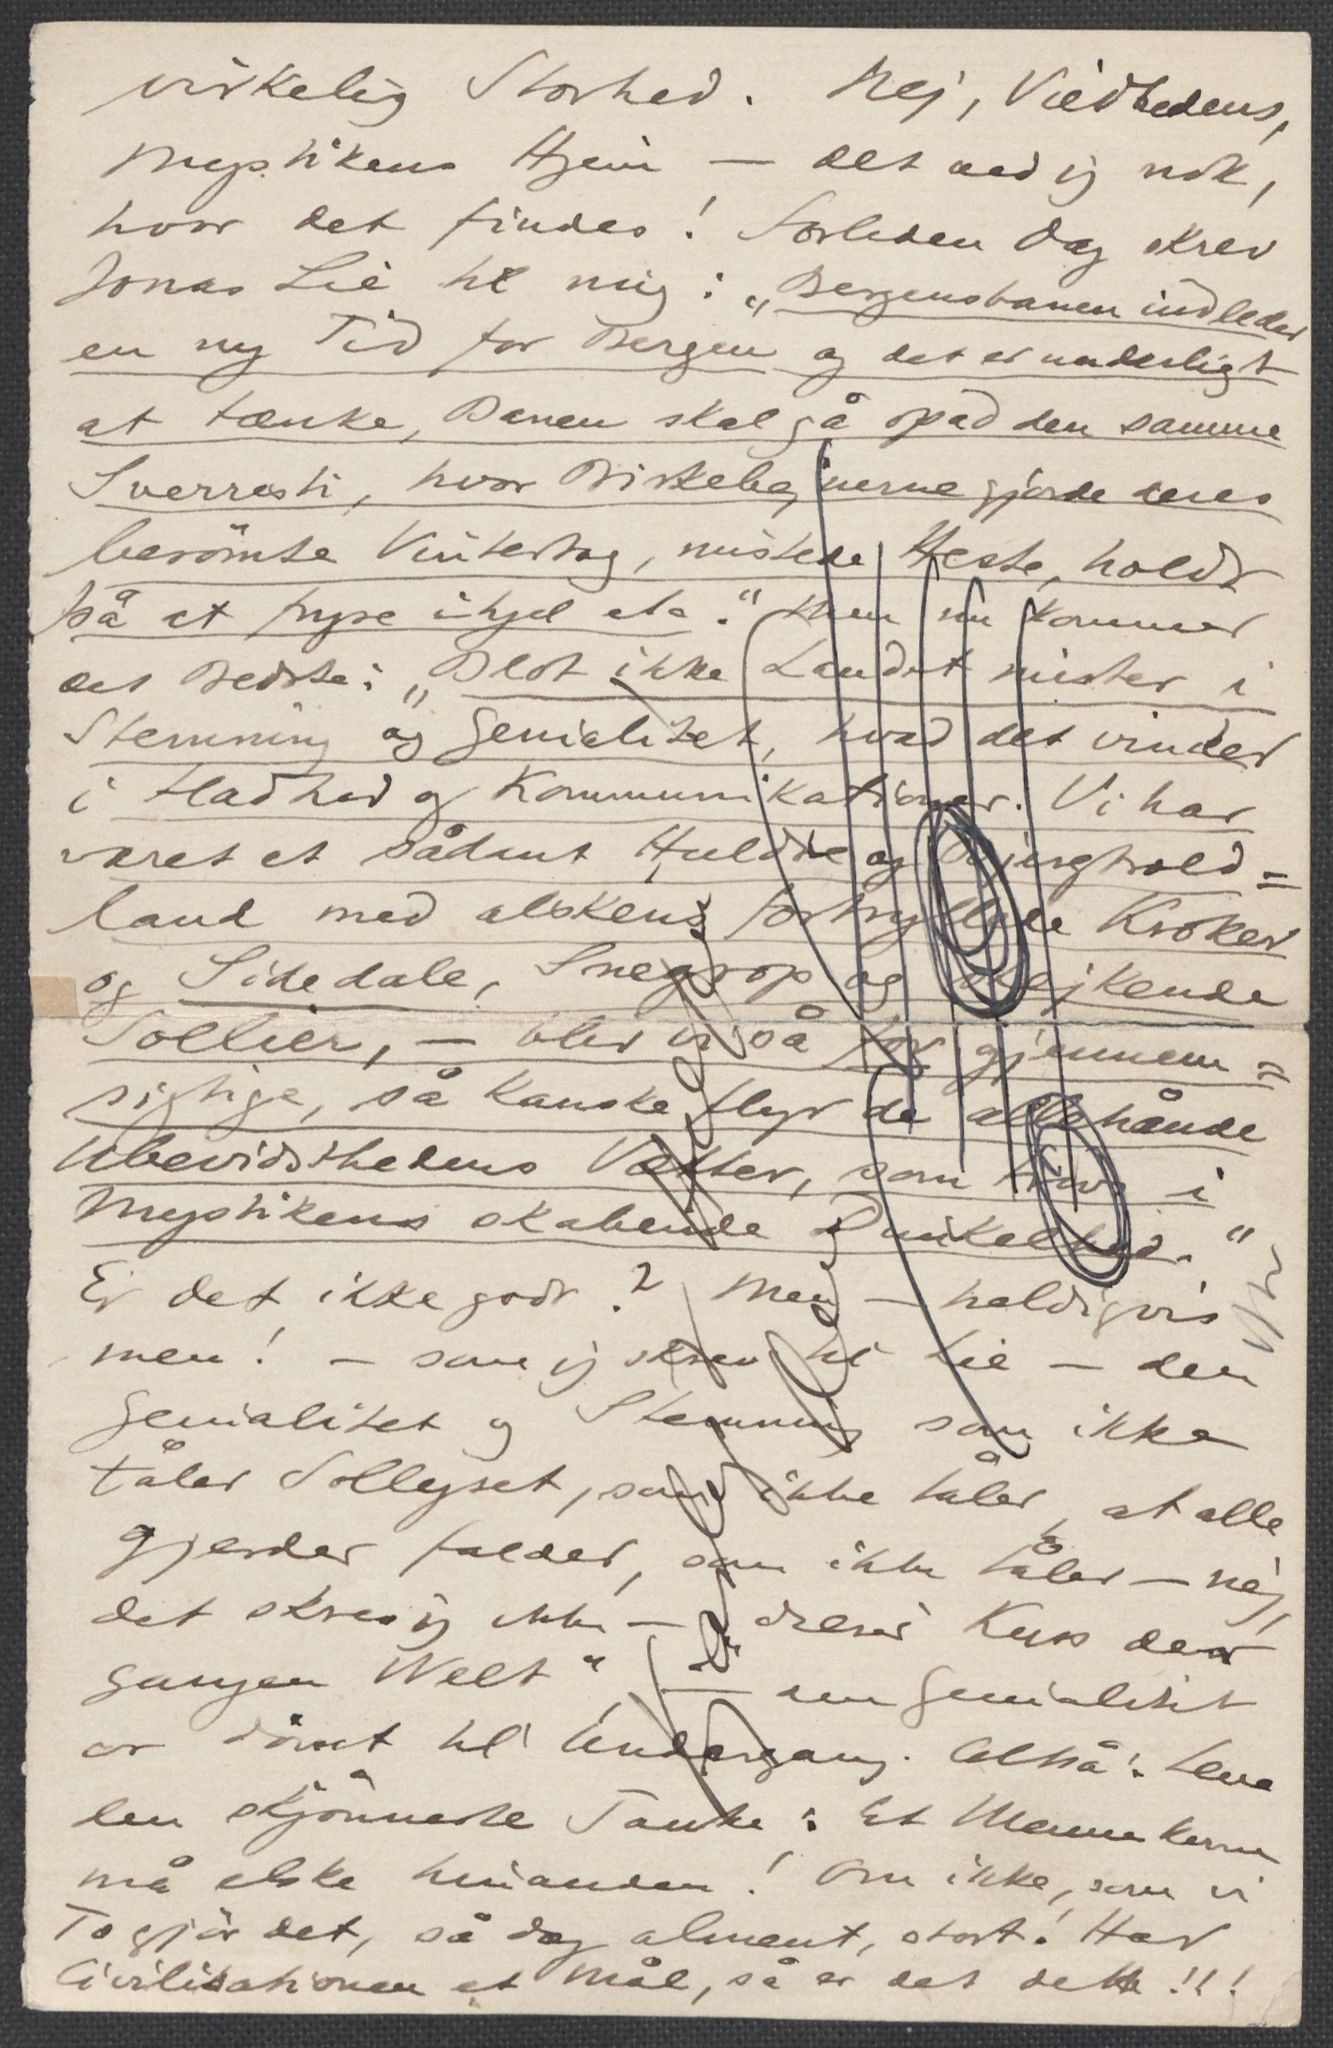 virkelig Storhed. Nej, Vildhedens,
Mystikens Hjem — det ved jeg nok,
hvor det findes! Forleden Dag skrev
Jonas Lie til mig: „Bergensbanen indleder
en ny Tid for Bergen og det er underligt
at tænke, Banen skal gå opad den samme
Sverresti, hvor Birkebejnerne gjorde deres
berömte Vintertog, mistede Heste, holdt
på at fryse ihjel etc." Men nu kommer
det Bedste: „Blot ikke Landet mister i
Stemning og Genialitet, hvad det vinder
i Fladhed og Kommunikationer. Vi har
været et sådant Huldre og Bjergtrold=
land med alskens fortryllede Kroker
og Sidedale, Snegrop og blejkende
Sollier, — blir vi så for gjennem=
sigtige, så kanske flyr de allehånde
Ubevidsthedens Vætter, som trivs i
Mystikens skabende Dunkelhed."
Er det ikke godt? Men — heldigvis
men! — som jeg skrev til Lie — den
Genialitet og Stemning som ikke
tåler Sollyset, som ikke tåler, at alle
Gjerder falder, som ikke tåler — nej,
det skrev jeg ikke — „diesen Kuss der
ganzen Welt" — den Genialitet
er dömt til Undergang. Altså: Leve
den skjönneste Tanke: At Menneskerne
må elske hinanden! Om ikke, som vi
To gjör det, så dog alment, stort! Har
Civilisationen et Mål, så er det dette!!!